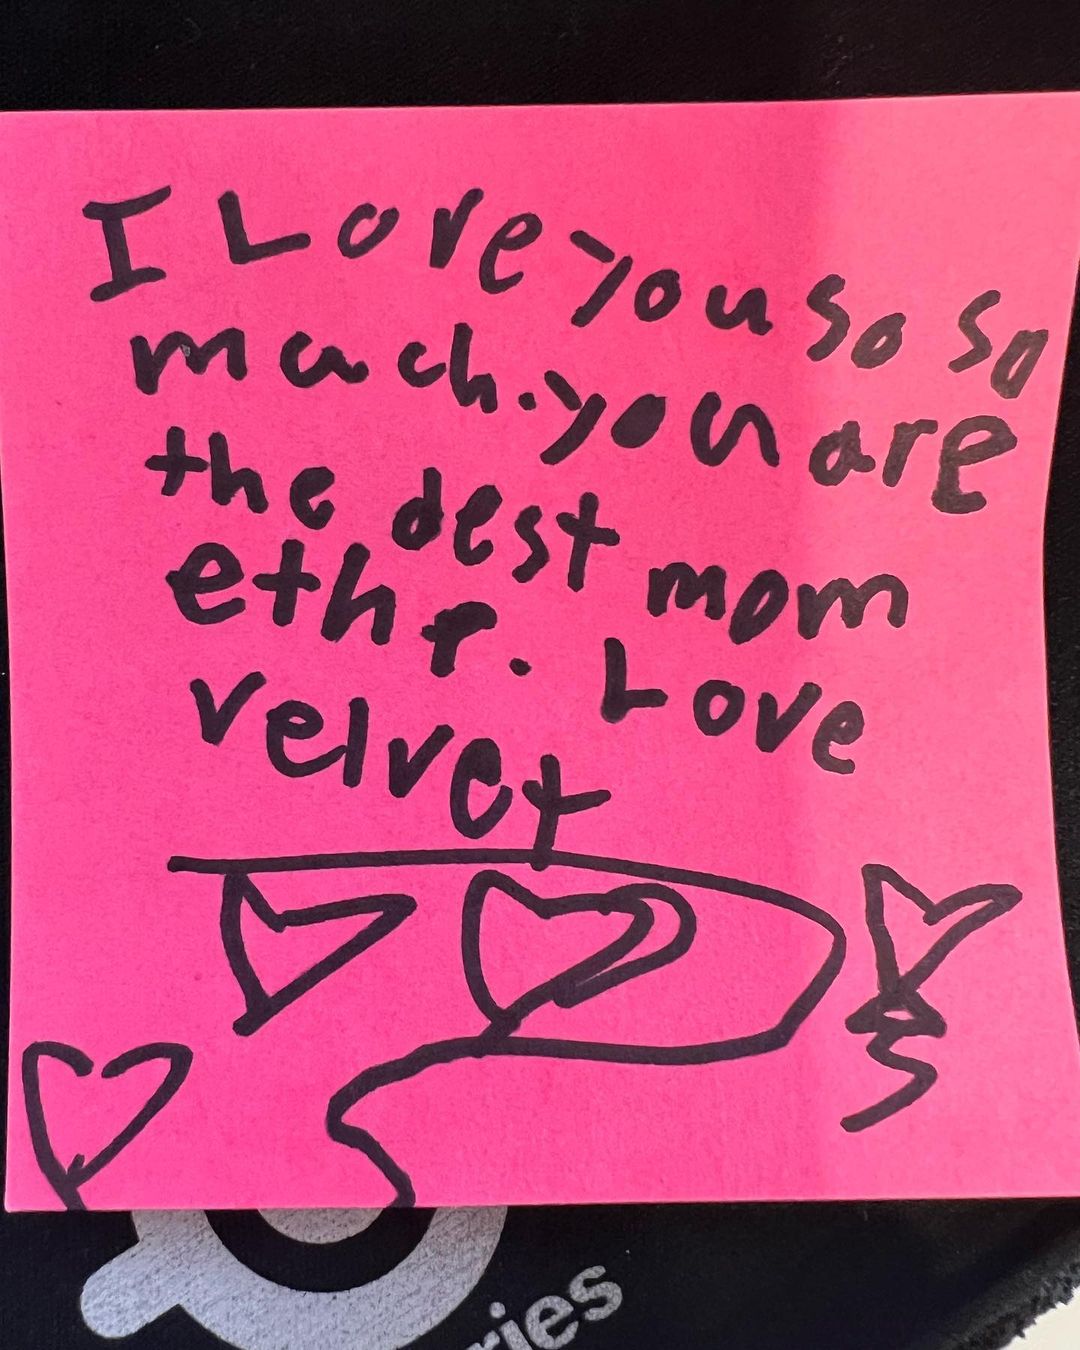 I Love you so so
much. you are
the dest mom
ethr. Love
velvet
ries